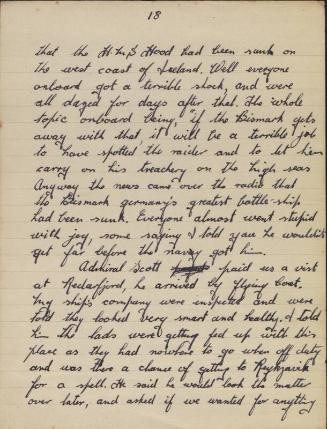 18
that the H.M.S Hood had been sunk on
the west coast of Iceland. Well everyone
onboard got a terrible shock, and were
all dazed for days after that. The whole
topic onboard being, if the Bismark gets
away with that it will be a terrible job
to have spotted the raider and to let him
carry on his treachery on the high seas
Anyway the news came over the radio that
the Bismark germany's greatest battle-ship
had been sunk. Everyone almost went stupid
with joy, some saying I told you he wouldn't
get far before the navy got him.
Admiral Scott paid us a visit
at Hvdarfjord, he arrived by flying boat.
My ships company were inspected and were
told they looked very smart and healthy. I told
him the lads were getting fed up with this
place as they had nowhere to go when off duty
and was there a chance of getting to Reykjavik
for a spell. He said he would look the matter
over later, and asked if we wanted for anything